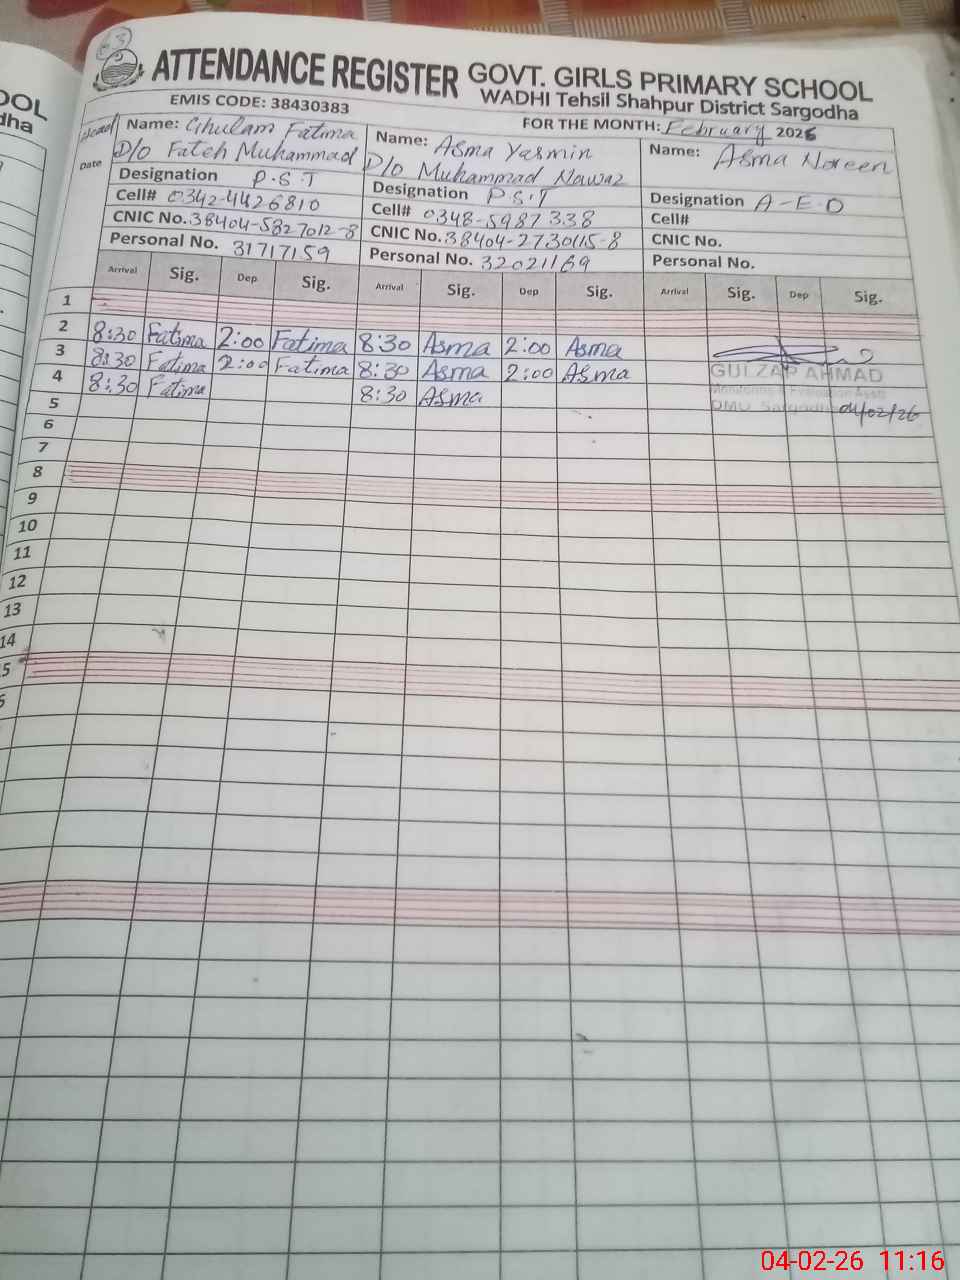 63
ATTENDANCE REGISTER GOVT. GIRLS PRIMARY SCHOOL
WADHI Tehsil Shahpur District Sargodha
EMIS CODE: 38430383
FOR THE MONTH: February 2026
Head Name: Ghulam Fatima
D/o Fateh Muhammad
Date
Designation P.S.T
Cell# 0342-4426810
CNIC No. 38404-5827012-8
Personal No. 31717159
Name: Asma Yasmin
D/o Muhammad Nawaz
Designation P.S.T
Cell# 0348-5987338
CNIC No. 38404-2730115-8
Personal No. 32021169
Name: Asma Noreen
Designation A-E-O
Cell#
CNIC No.
Personal No.
Arrival Sig. Dep Sig. Arrival Sig. Dep Sig. Arrival Sig. Dep Sig.
1
2 8:30 Fatima 2:00 Fatima 8:30 Asma 2:00 Asma
3 8:30 Fatima 2:00 Fatima 8:30 Asma 2:00 Asma
4 8:30 Fatima 8:30 Asma
GULZAR AHMAD
Monitoring & Evaluation Asstt
DMO Sargodha 04/02/26
5
6
7
8
9
10
11
12
13
14
5
OOL
dha
04-02-26 11:16